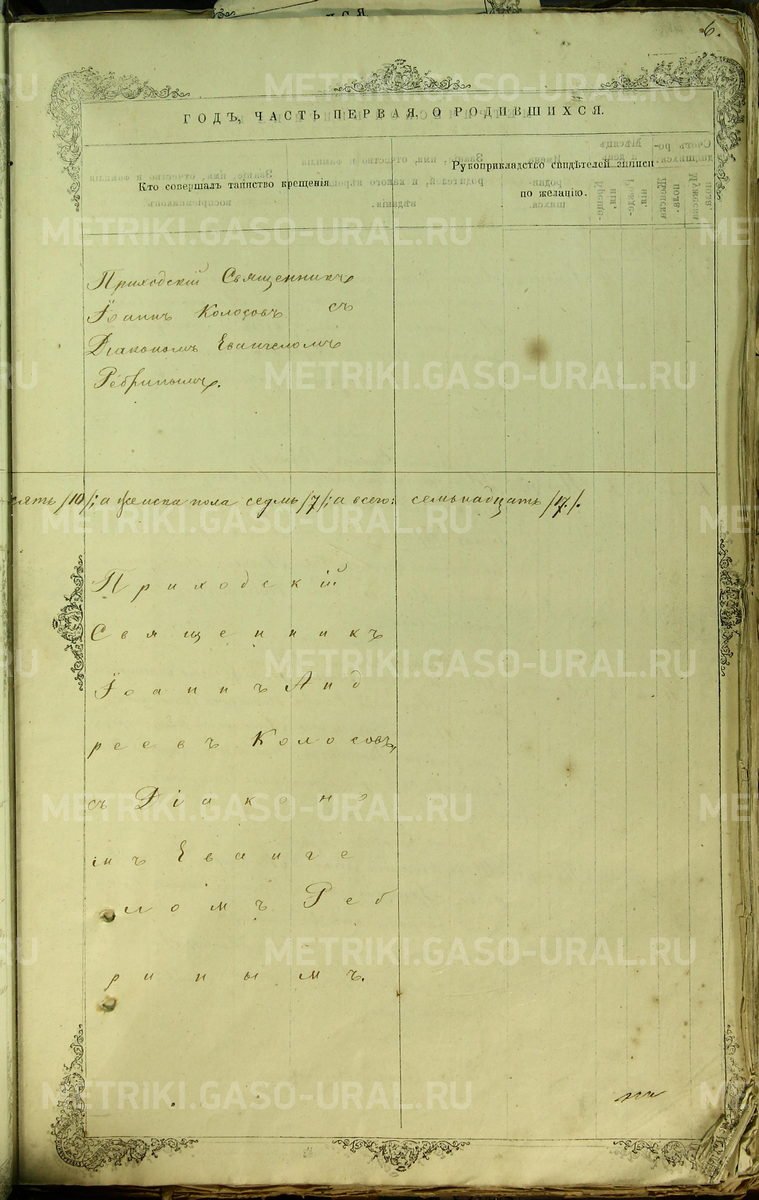 6.
ГОДЪ, ЧАСТЬ ПЕРВАЯ, О РОДИВШИХСЯ.
Кто совершалъ таинство крещенія
Рукоприкладство свидѣтелей записи
по желанію.
Приходскій Священникъ
Іоаннъ Колосовъ съ
Діакономъ Евангеломъ
Ребринымъ.
сять /10/; а женска пола седмь /7/; а всего: семьнадцать /17/.
Приходскій
Священникъ
Іоаннъ Анд
реевъ Колосовъ,
съ Діаконо
мъ Еванге
ломъ Реб
ринымъ.
METRIKI.GASO-URAL.RU